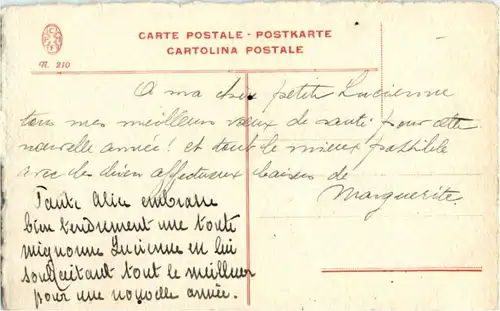 CARTE POSTALE - POSTKARTE
CARTOLINA POSTALE
N. 210
A ma petite Lucienne
tous mes meilleurs vœux de santé pour cette
nouvelle année! et tout le mieux possible
avec de bien affectueux baisers de
Marguerite.
Tante Alice embrasse
bien tendrement une toute
mignonne Lucienne en lui
souhaitant tout le meilleur
pour une nouvelle année.